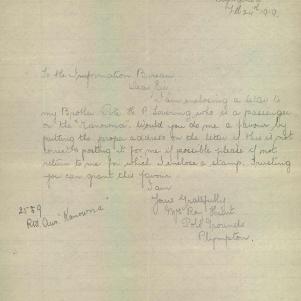 Feb 24th 1919.
To the Information Bureau
Dear Sir
I am enclosing a letter to
my Brother Pte H. P. Lovering who is a passenger
on the "Kanowna". Would you do me a favour by
putting the proper address on the letter if this is not
correct & posting it for me if possible please if not
return to me for which I enclose a stamp. Trusting
you can grant this favour
I am
Yours Gratefully
Mrs Hunt
Polo Grounds
Plympton.
2559
"Kanowna"